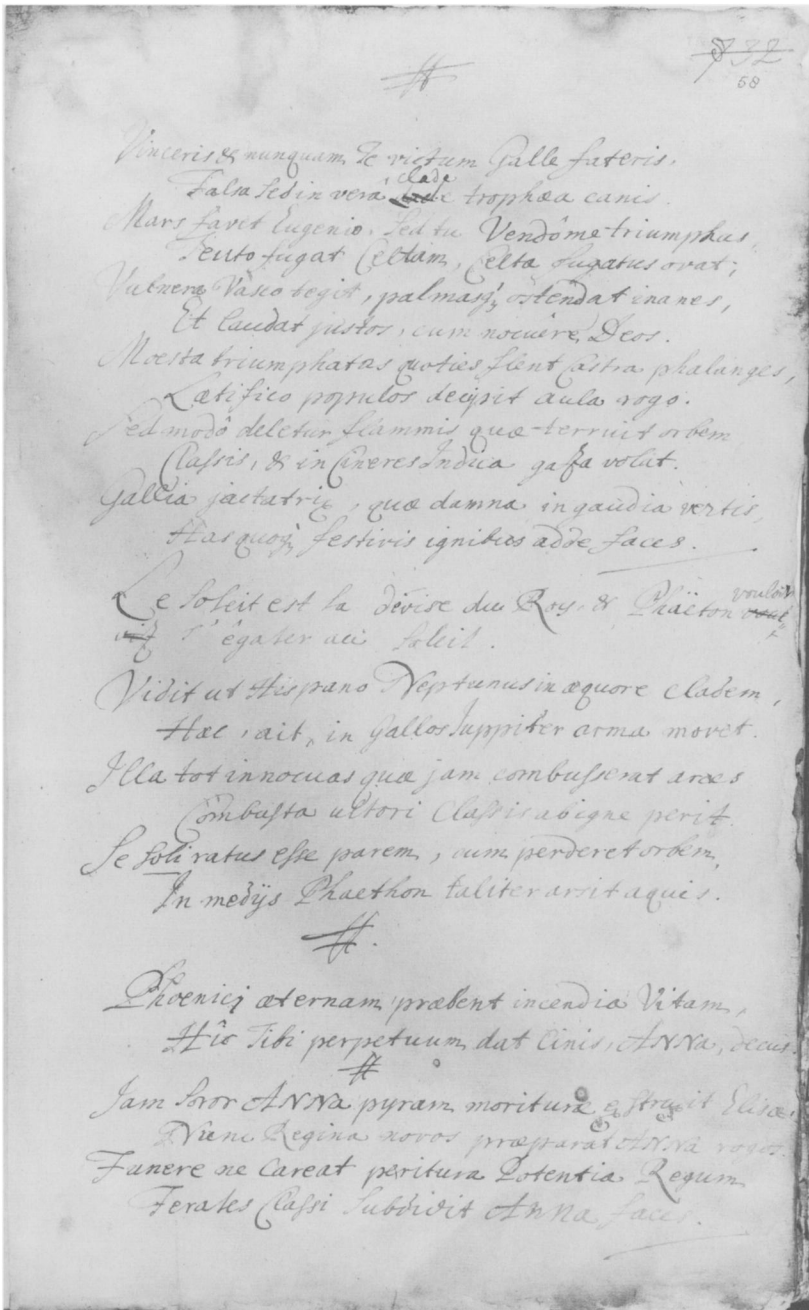 732
58
Vinceris & nunquam Te victum Galle fateris.
clade
Falsa sed in verâ trophæa canis.
Mars favit Eugenio. Sed tu Vendôme triumphas,
Teuto fugat Celtam, Celta fugatus ovat;
Vulnera Vasco tegit, palmasq; ostendat inanes,
Et laudat justos, cum nocuêre, Deos.
Moesta triumphatas quoties flent Castra phalanges,
Lætifico populos decipit aula rogo.
Sed modô deletur flammis quæ terruit orbem
Classis, & in Cineres Indica gaza volat.
Gallia jactatrix, quæ damna in gaudia vertis,
Has quoq; festivis ignibus adde faces.
vouloir
Le Soleil est la dévise du Roy. & Phäeton
s'égaler au Soleil.
Vidit ut Hispano Neptunus in æquore cladem,
Hæc, ait, in Gallos Juppiter arma movet.
Illa tot innocuas quæ jam combusserat arces
Combusta ultori Classis ab igne perit.
Se Soli ratus esse parem, cum perderet orbem,
In medijs Phaethon taliter arsit aquis.
Phoenici æternam præbent incendia Vitam,
Hîc Tibi perpetuum dat Cinis, ANNA, decus.
Jam Soror ANNA pyram morituræ exstruxit Elisæ.
Nunc Regina novos præparat ANNA rogos.
Funere ne Careat peritura Potentia Regum
Ferales Classi Subdidit ANNA faces.